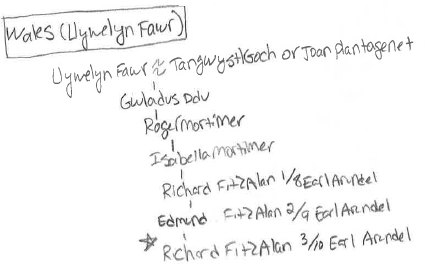 Wales (Llywelyn Fawr)
Llywelyn Fawr ≈ Tangwystl Goch or Joan Plantagenet
Gwladus Ddu
Roger Mortimer
Isabella Mortimer
Richard FitzAlan 1/8 Earl Arundel
Edmund FitzAlan 2/9 Earl Arundel
Richard FitzAlan 3/10 Earl Arundel